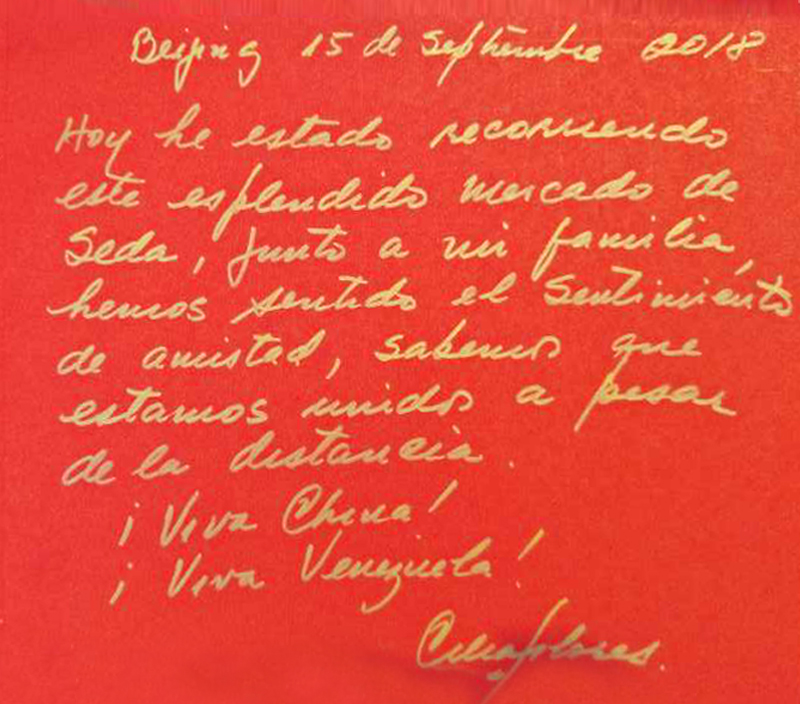 Beijing 15 de Septiembre 2018
Hoy he estado recorriendo
este esplendido mercado de
Seda, junto a mi familia,
hemos sentido el Sentimiento
de amistad, sabemos que
estamos unidos a pesar
de la distancia.
¡Viva China!
¡Viva Venezuela!
Cilia Flores.